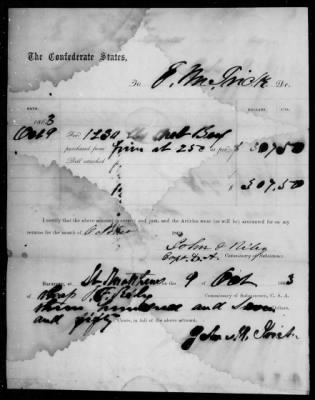 The Confederate States,
To E. M. Frick Dr.
DATE. DOLLARS. CTS.
1863
Oct 9 For 1230 Net Beef
purchased from him at 250 as per $ 307,50
Bill attached
$ 307,50
I certify that the above account is correct and just, and the Articles were (or will be) accounted for on my
returns for the month of October 186
John
Capt. & A. Commissary of Subsistence.
RECEIVED, at St. Matthews 9 Oct 1863
of Capt Commissary of Subsistence, C. S. A.
three hundred and seven Dollars
and fifty Cents, in full of the above account.
John M.